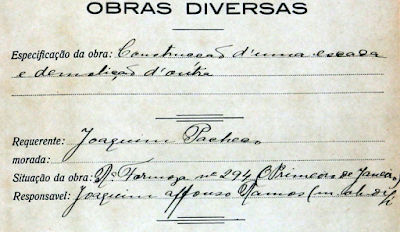 OBRAS DIVERSAS
Especificação da obra: Construcção d'uma escada
e demolição d'outra
Requerente: Joaquim Pacheco
morada:
Situação da obra: R. Formoza nº 294 (O Primeiro de Janeiro)
Responsavel: Joaquim Affonso Ramos (m. ob. dip